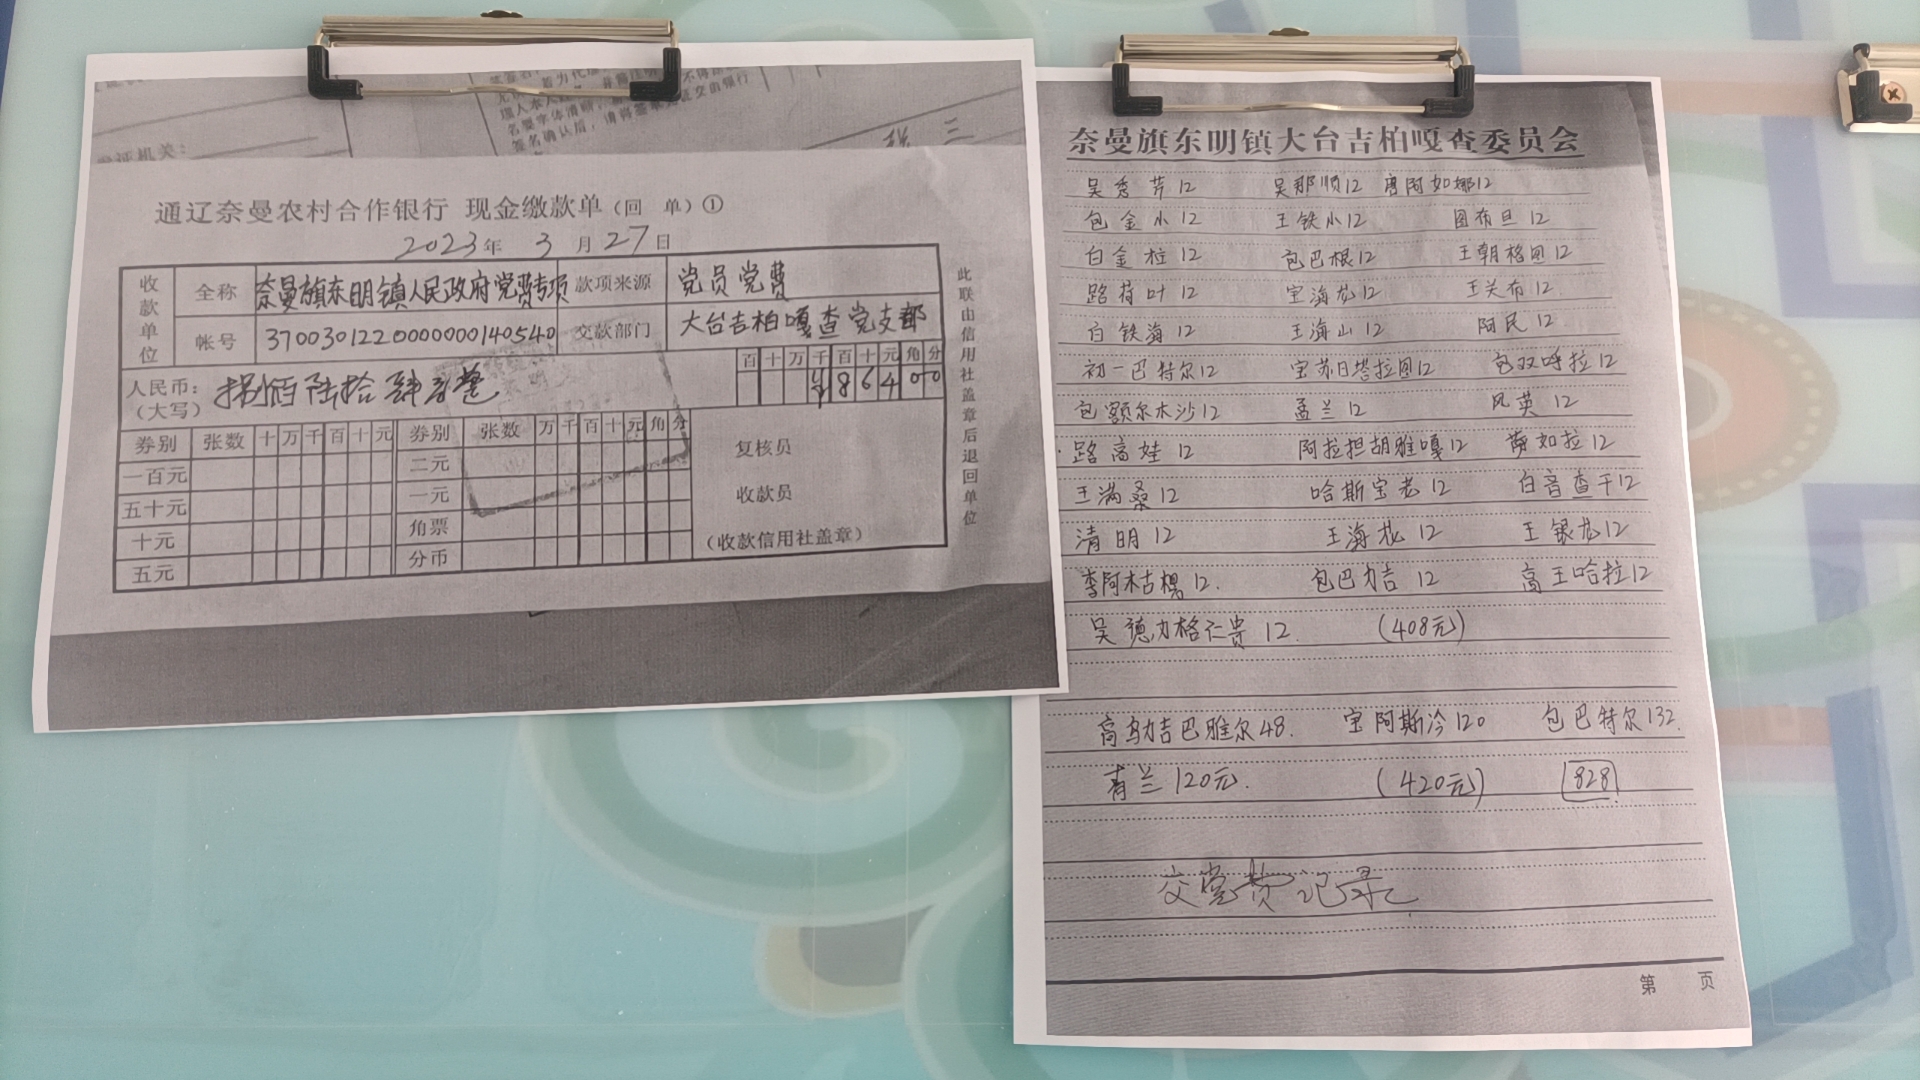 发证机关：
签名确认后，请将签单
通辽奈曼农村合作银行 现金缴款单（回 单）①
2023年 3月27日
收款单位 全称 奈曼旗东明镇人民政府党费专项 款项来源 党员党费
帐号 3700301220000000140540 交款部门 大台吉柏嘎查党支部
人民币：（大写） 捌佰陆拾肆元整 百十万千百十元角分 ¥86400
券别 张数 十万千百十元 券别 张数 万千百十元角分
一百元 二元 复核员
五十元 一元 收款员
十元 角票
五元 分币 （收款信用社盖章）
此联由信用社盖章后退回单位
奈曼旗东明镇大台吉柏嘎查委员会
吴秀芹12 吴那顺12 唐阿如娜12
包金小12 王铁小12 图布旦12
白金柱12 包巴根12 王朝格图12
路荷叶12 宝海龙12 王关布12
白铁海12 王海山12 阿民12
初一巴特尔12 宝苏日塔拉图12 包双呼拉12
包额尔木沙12 孟兰12 凤英12
路高娃12 阿拉担胡雅嘎12 萨如拉12
王满桑12 哈斯宝老12 白音查干12
清明12 王海龙12 王银龙12
李阿木古楞12. 包巴力吉12 高王哈拉12
吴德力格仁贵12. （408元）
高乌力吉巴雅尔48. 宝阿斯冷120 包巴特尔132.
青兰120元. （420元） 828
交党费记录
第 页